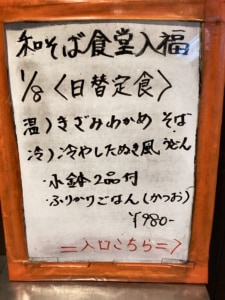 和そば食堂入福
1/8 〈日替定食〉
温）きざみわかめ そば
冷）冷やしたぬき風 うどん
・小鉢2品付
・ふりかけごはん（かつお）
¥980-
＝入口こちら＝＞